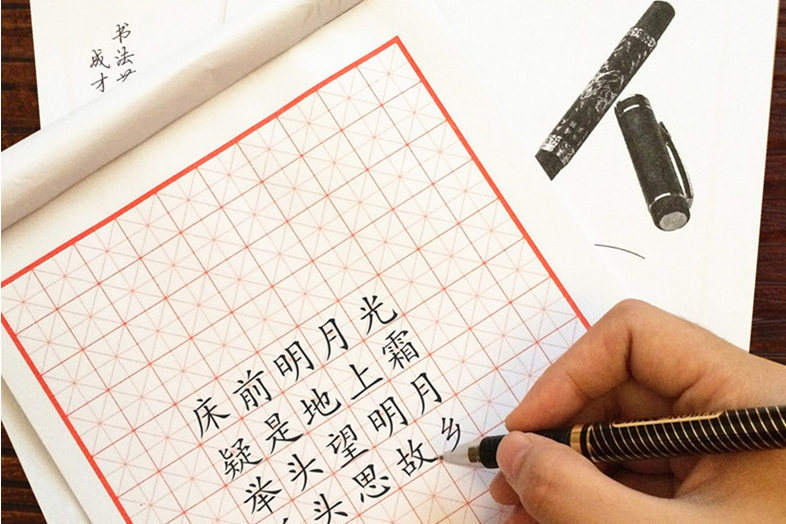 书法
成才
床前明月光
疑是地上霜
举头望明月
头思故乡